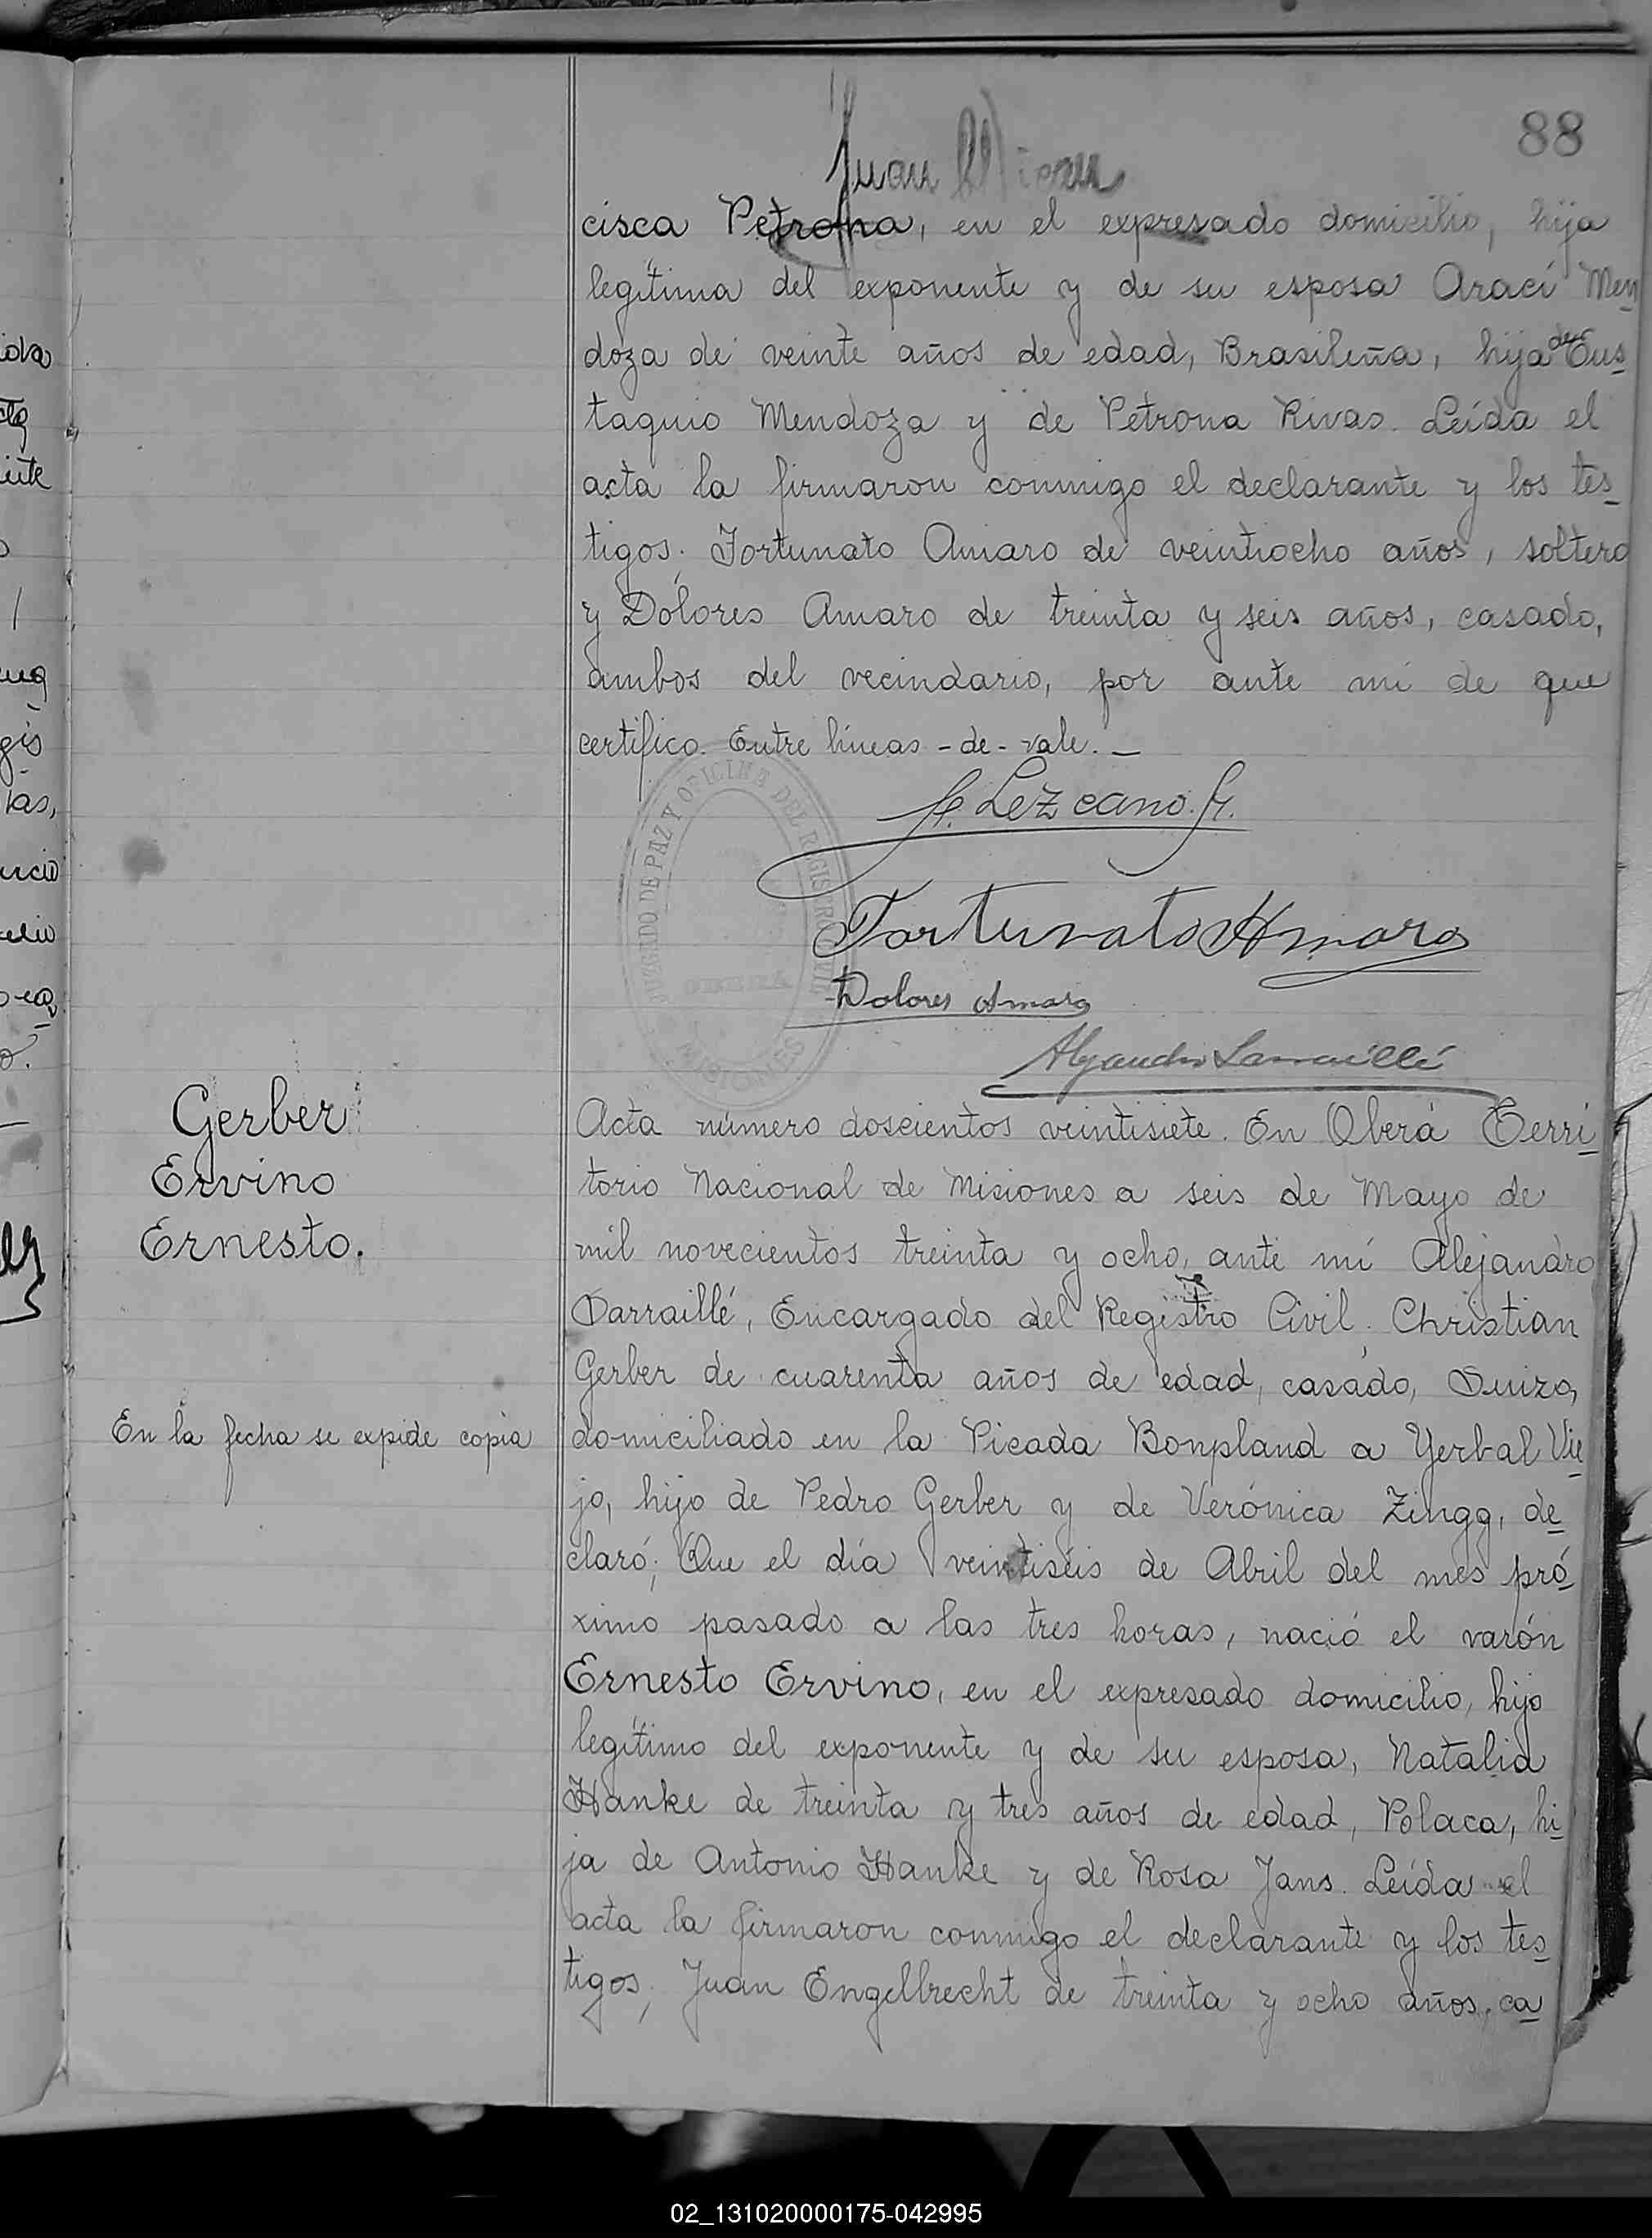 88
Juan
cisca Petrona, en el expresado domicilio, hija
legítima del exponente y de su esposa Araci Men
doza de veinte años de edad, Brasileña, hija de Eus
taquio Mendoza y de Petrona Rivas. Leída el
acta la firmaron conmigo el declarante y los tes
tigos. Fortunato Amaro de veintiocho años, soltero
y Dolores Amaro de treinta y seis años, casado,
ambos del vecindario, por ante mi de que
certifico. Entre líneas - de - vale. —
Lezcano
Fortunato Amaro
Dolores Amaro
Alejandro Sarraillé
JUZGADO DE PAZ Y OFICINA DEL REGISTRO CIVIL
OBERA
MISIONES
Gerber
Ervino
Ernesto.
En la fecha se expide copia
Acta número doscientos veintisiete. En Oberá Terri
torio Nacional de Misiones a seis de Mayo de
mil novecientos treinta y ocho, ante mí Alejandro
Sarraillé, Encargado del Registro Civil. Christian
Gerber de cuarenta años de edad, casado, Suizo,
domiciliado en la Picada Bonpland a Yerbal Vie
jo, hijo de Pedro Gerber y de Verónica Zingg, de
claró; Que el día veintiséis de Abril del mes pró
ximo pasado a las tres horas, nació el varón
Ernesto Ervino, en el expresado domicilio, hijo
legítimo del exponente y de su esposa, Natalia
Hanke de treinta y tres años de edad, Polaca, hi
ja de Antonio Hanke y de Rosa Jans. Leída el
acta la firmaron conmigo el declarante y los tes
tigos; Juan Engelbrecht de treinta y ocho años, ca
02_131020000175-042995